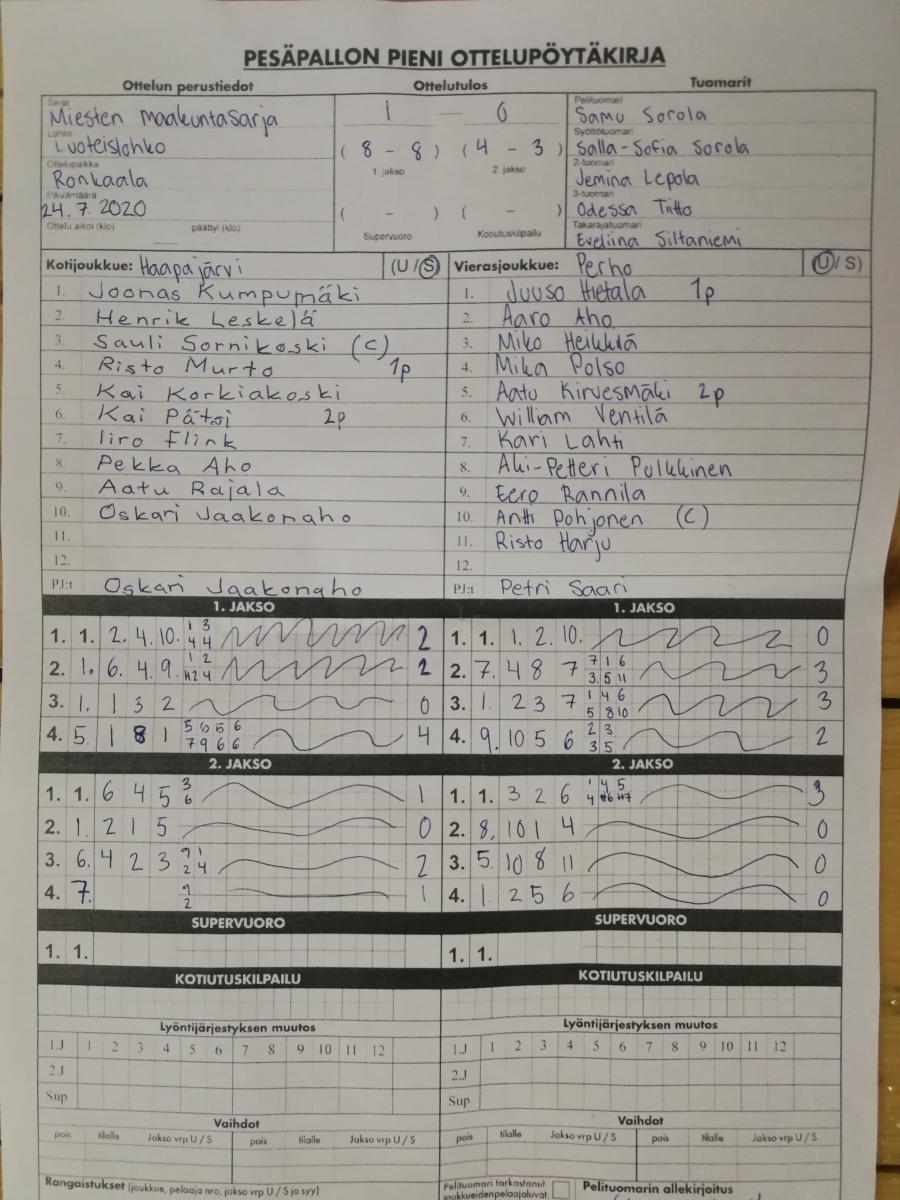 PESÄPALLON PIENI OTTELUPÖYTÄKIRJA
Ottelun perustiedot Ottelutulos Tuomarit
Sarja
Miesten maakuntasarja
Lohko
Luoteislohko
Ottelupaikka
Ronkaala
Päivämäärä
24.7.2020
Ottelu alkoi (klo) päättyi (klo)
1 — 0
( 8 - 8 ) ( 4 - 3 )
1. jakso 2. jakso
( - ) ( - )
Supervuoro Kotiutuskilpailu
Pelituomari
Samu Sorola
Syöttötuomari
Salla-Sofia Sorola
2-tuomari
Jemina Lepola
3-tuomari
Odessa Tiitto
Takarajatuomari
Eveliina Siltaniemi
Kotijoukkue: Haapajärvi (U / S)
1. Joonas Kumpumäki
2. Henrik Leskelä
3. Sauli Sornikoski (C)
4. Risto Murto 1p
5. Kai Korkiakoski
6. Kai Pätsi 2p
7. Iiro Flink
8. Pekka Aho
9. Aatu Rajala
10. Oskari Jaakonaho
11.
12.
PJ:t Oskari Jaakonaho
Vierasjoukkue: Perho (U / S)
1. Juuso Hietala 1p
2. Aaro Aho
3. Miko Heikkilä
4. Mika Polso
5. Aatu Kirvesmäki 2p
6. William Ventilä
7. Kari Lahti
8. Aki-Petteri Pulkkinen
9. Eero Rannila
10. Antti Pohjonen (C)
11. Risto Harju
12.
PJ:t Petri Saari
1. JAKSO
1. 1. 2. 4. 10. 1 3 2
4 4
2. 1. 6. 4. 9. 1 2 2
H2 4
3. 1. 1 3 2 0
4. 5. 1 8 1 5 6 5 6 4
7 9 6 6
1. JAKSO
1. 1. 1. 2. 10. 0
2. 7. 4 8 7 7 1 6 3
3. 5 11
3. 1. 2 3 7 1 4 6 3
5 8 10
4. 9. 10 5 6 2 3 2
3 5
2. JAKSO
1. 1. 6 4 5 3 1
6
2. 1. 2 1 5 0
3. 6. 4 2 3 9 1 2
2 4
4. 7. 9 1
2
2. JAKSO
1. 1. 3 2 6 1 4 5 3
4 H6 H7
2. 8. 10 1 4 0
3. 5. 10 8 11 0
4. 1. 2 5 6 0
SUPERVUORO SUPERVUORO
1. 1. 1. 1.
KOTIUTUSKILPAILU KOTIUTUSKILPAILU
Lyöntijärjestyksen muutos Lyöntijärjestyksen muutos
1.J 1 2 3 4 5 6 7 8 9 10 11 12 1.J 1 2 3 4 5 6 7 8 9 10 11 12
2.J 2.J
Sup Sup
Vaihdot Vaihdot
pois tilalle Jakso vrp U / S pois tilalle Jakso vrp U / S pois tilalle Jakso vrp U / S pois tilalle Jakso vrp U / S
Rangaistukset (joukkue, pelaaja nro, jakso vrp U / S ja syy)
Pelituomari tarkastanut
joukkueidenpelaajaluvat
Pelituomarin allekirjoitus